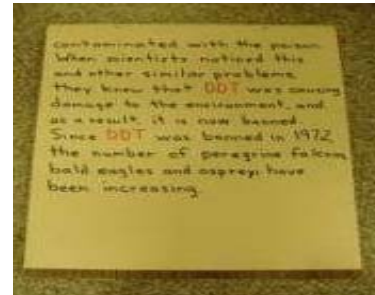 contaminated with the poison.
When scientists noticed this
and other similar problems
they knew that DDT was causing
damage to the environment, and
as a result, it is now banned.
Since DDT was banned in 1972
the number of peregrine falcons
bald eagles and ospreys have
been increasing.